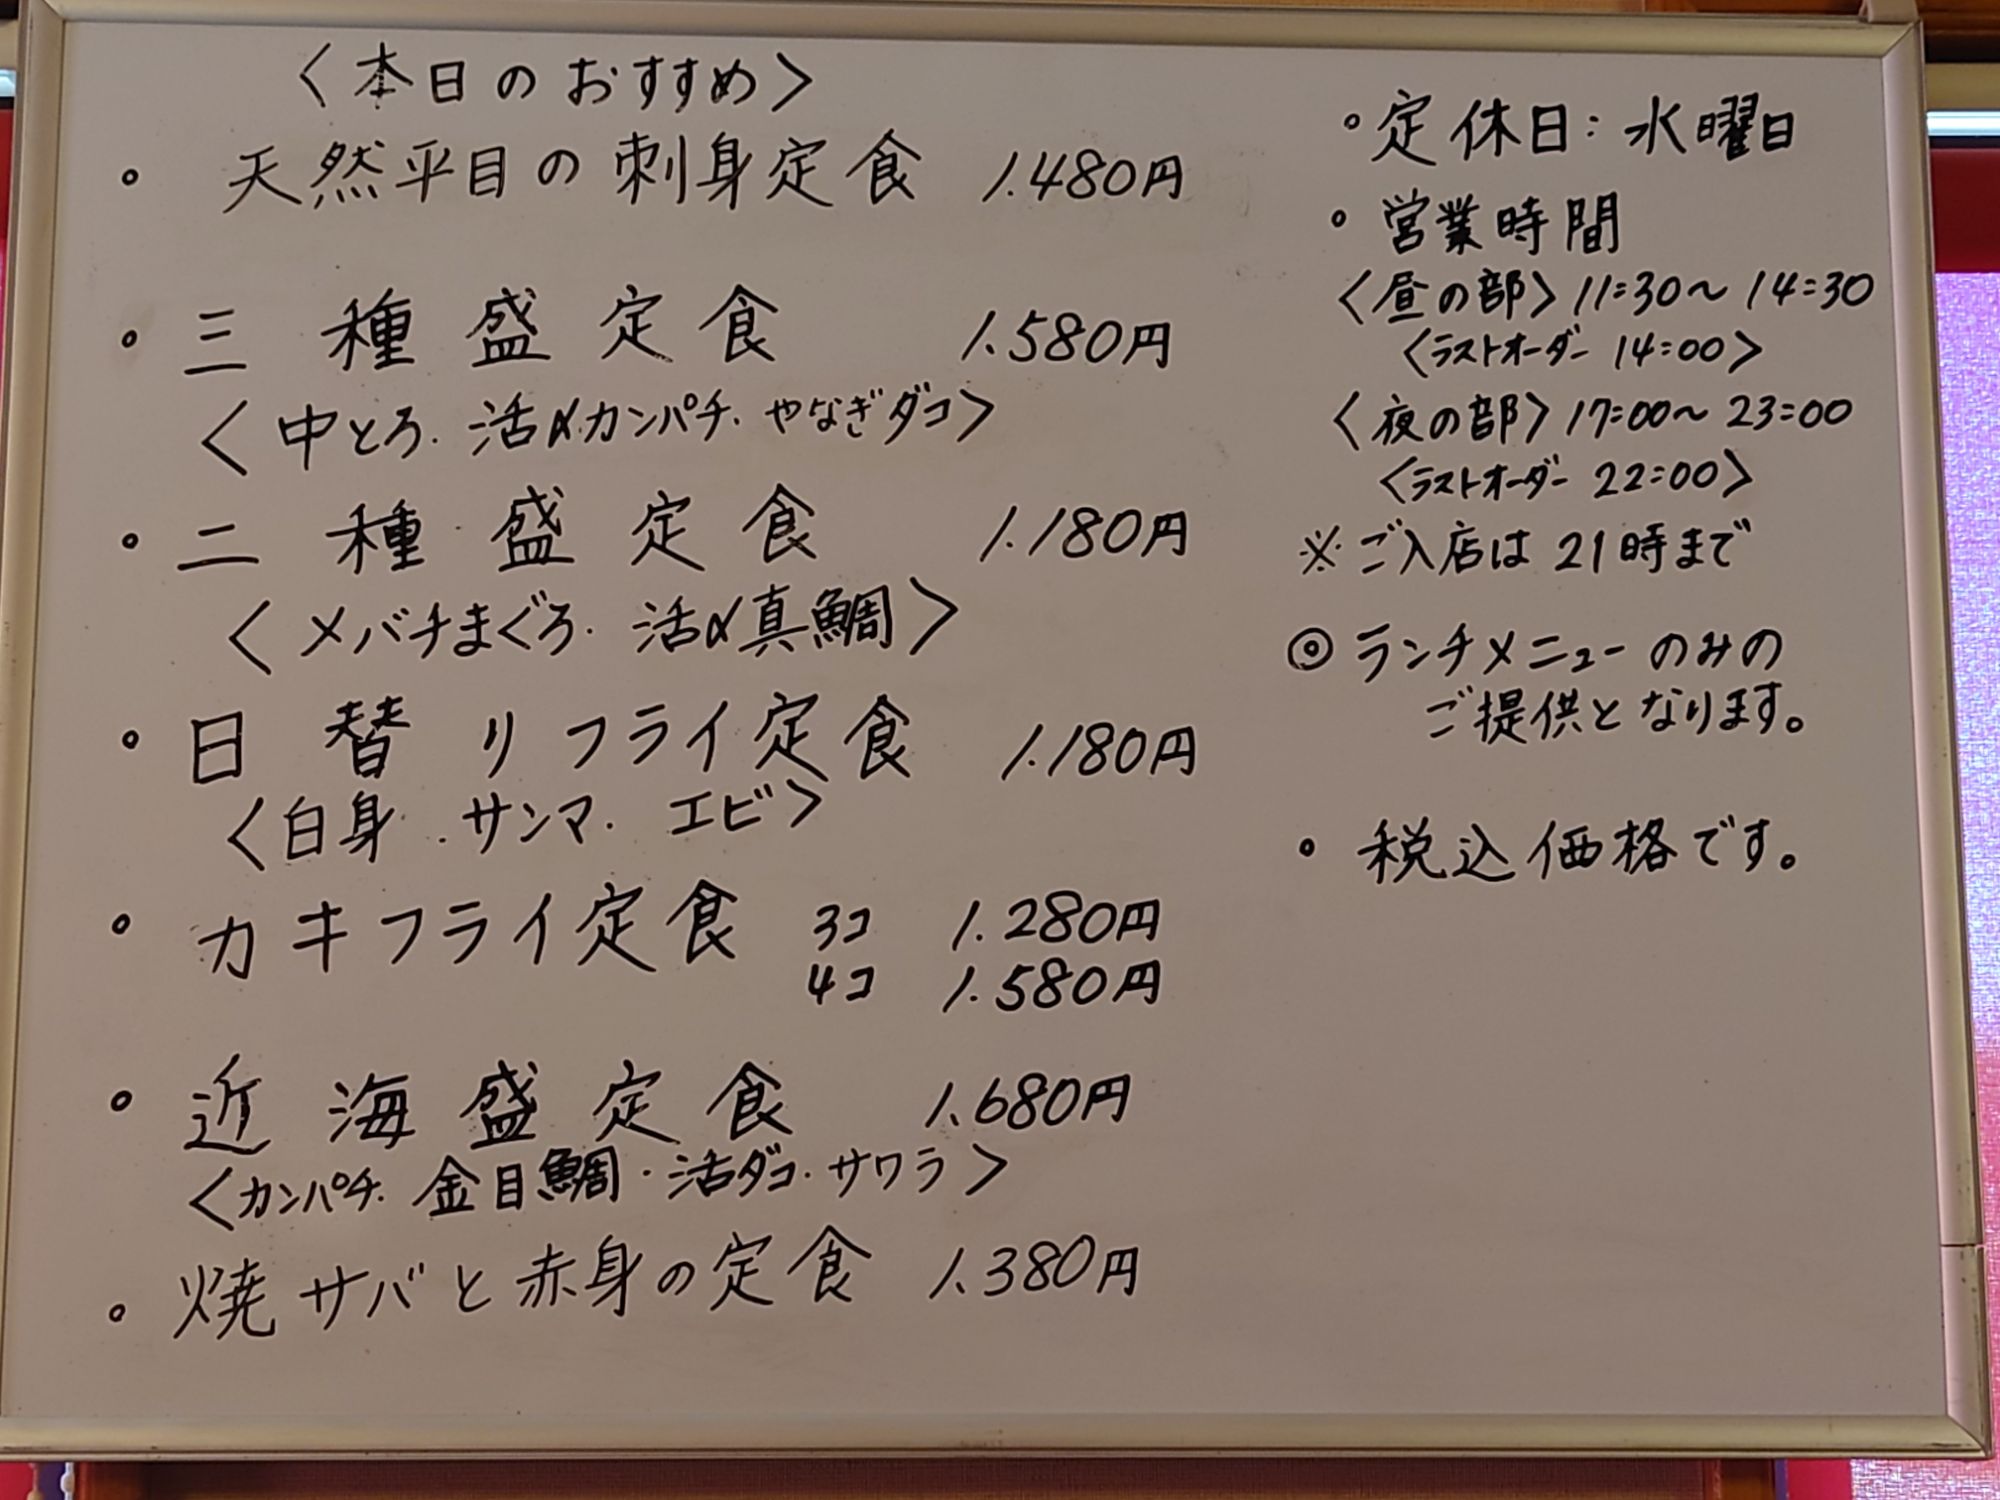 〈本日のおすすめ〉
・天然平目の刺身定食 1.480円
・三種盛定食 1.580円
〈中とろ.活〆カンパチ.やなぎダコ〉
・二種盛定食 1.180円
〈メバチまぐろ.活〆真鯛〉
・日替りフライ定食 1.180円
〈白身.サンマ.エビ〉
・カキフライ定食 3コ 1.280円
4コ 1.580円
・近海盛定食 1.680円
〈カンパチ.金目鯛・活ダコ.サワラ〉
・焼サバと赤身の定食 1.380円
・定休日:水曜日
・営業時間
〈昼の部〉11:30〜14:30
〈ラストオーダー 14:00〉
〈夜の部〉17:00〜23:00
〈ラストオーダー 22:00〉
※ご入店は21時まで
◎ランチメニューのみの
ご提供となります。
・税込価格です。